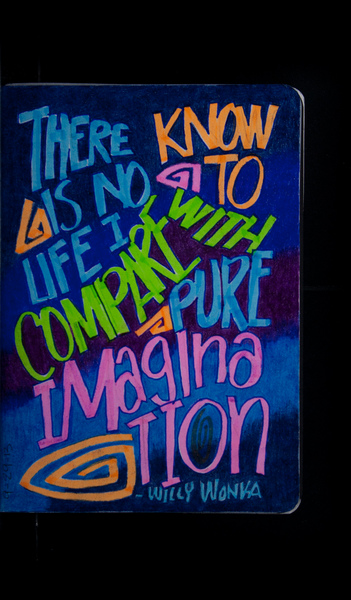 THERE
IS NO
LIFE I
KNOW
TO
COMPARE WITH
PURE
IMagina
TION
- WILLY WONKA